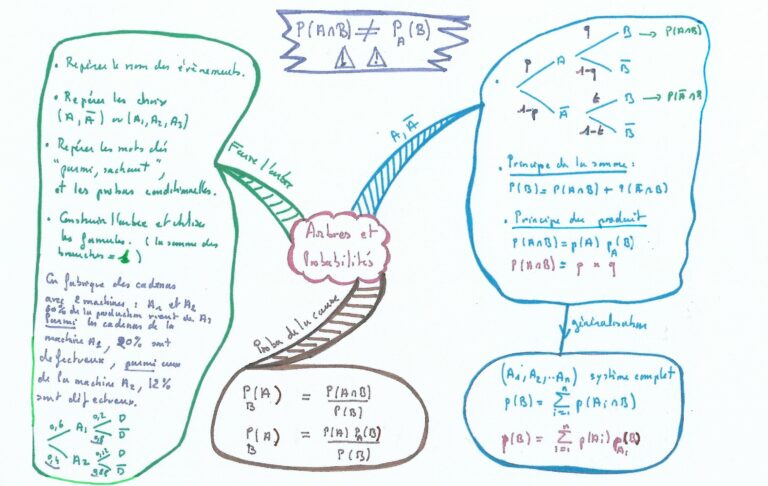 P(A∩B) ≠ P_A(B)
⚠ ⚠
• Repérer le nom des évènements.
• Repérer les choix
(A, Ā) ou (A₁, A₂, A₃)
• Repérer les mots clés
"parmi, sachant",
et les probas conditionnelles.
• Construire l'arbre et utiliser
les formules. (la somme des
branches = 1)
On fabrique des cadenas
avec 2 machines : A₁ et A₂
60% de la production vient de A₁
Parmi les cadenas de la
machine A₁, 20% sont
défectueux, parmi ceux
de la machine A₂, 12%
sont défectueux.
0,6 A₁ 0,2 D
0,8 D̄
0,4 A₂ 0,12 D
0,88 D̄
Faire l'arbre
Arbres et
Probabilités
A, Ā
p A q B → P(A∩B)
1-q B̄
1-p Ā t B → P(Ā∩B)
1-t B̄
• Principe de la somme :
P(B) = P(A∩B) + P(Ā∩B)
• Principe du produit
P(A∩B) = p(A) p_A(B)
P(A∩B) = p × q
généralisation
(A₁, A₂, ... Aₙ) système complet
p(B) = ∑ⁿᵢ₌₁ p(Aᵢ∩B)
p(B) = ∑ⁿᵢ₌₁ p(Aᵢ) p_Aᵢ(B)
Proba de la cause
P_B(A) = P(A∩B) / P(B)
P_B(A) = P(A) P_A(B) / P(B)